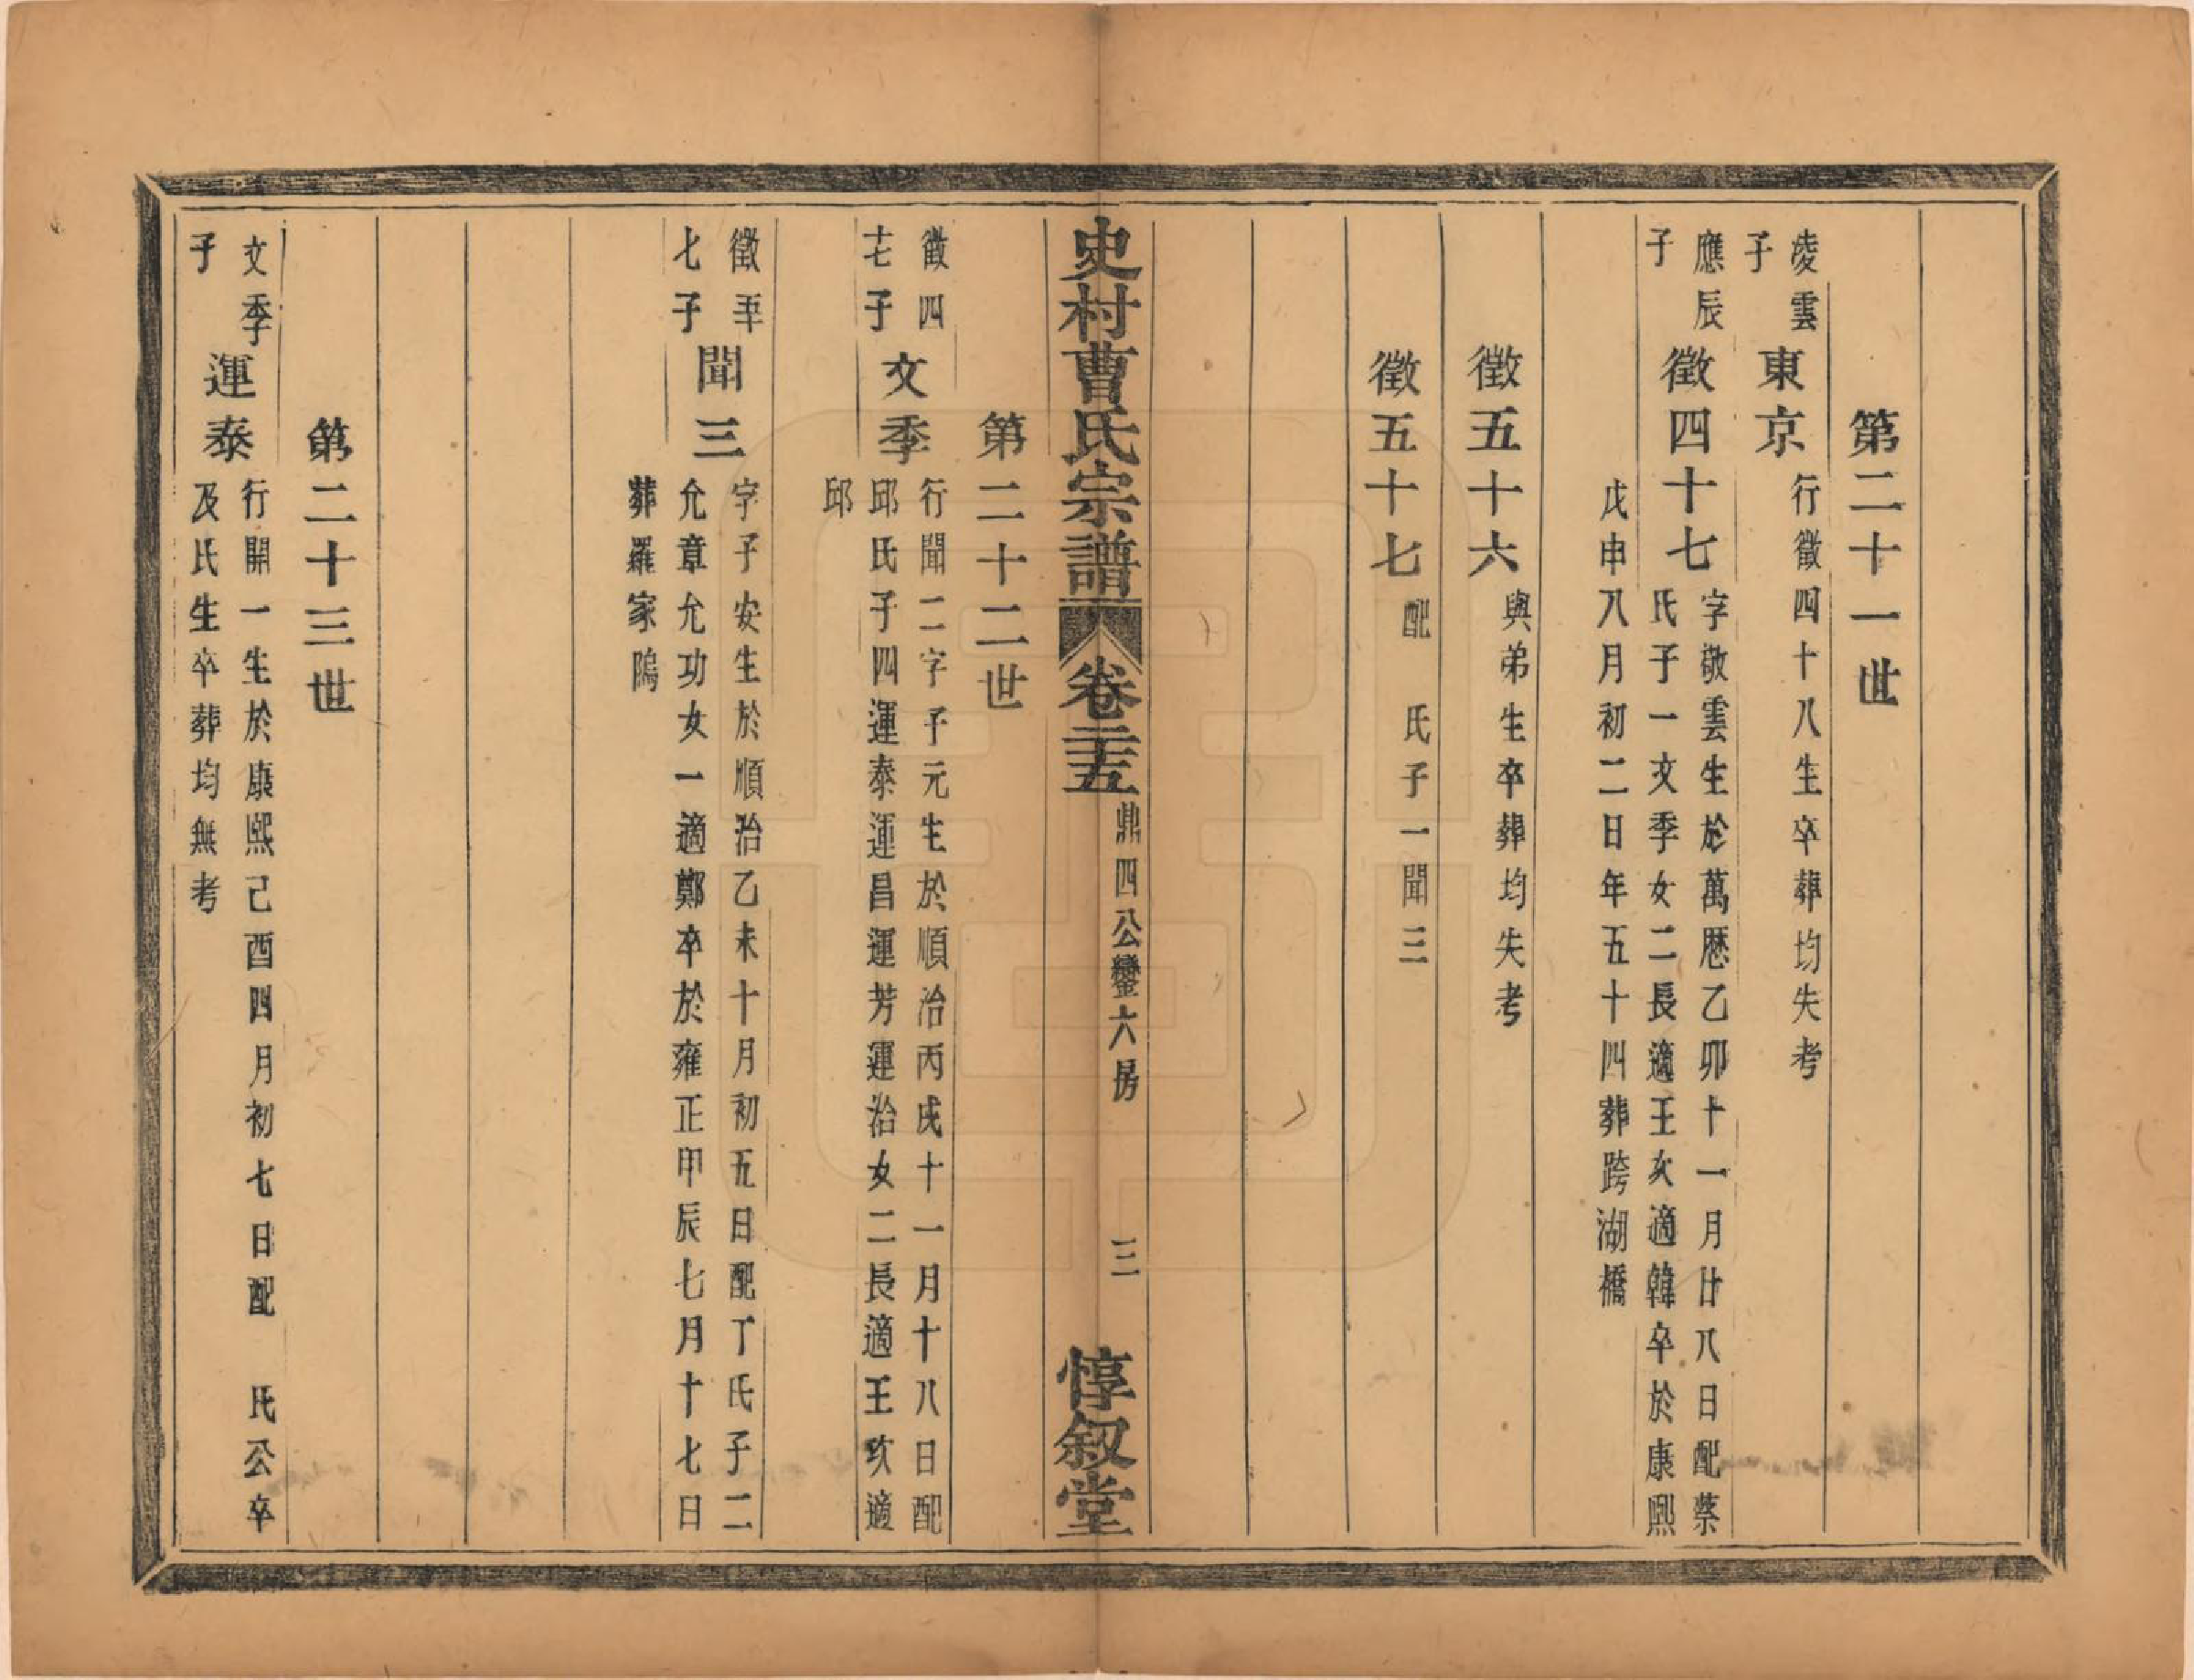 第二十一世
凌雲
子
東京
行徵四十八生卒葬均失考
應辰
子
徵四十七
字敬雲生於萬歷乙卯十一月廿八日配蔡
氏子一文季女二長適王次適韓卒於康熙
戊申八月初二日年五十四葬跨湖橋
徵五十六
與弟生卒葬均失考
徵五十七
配　氏子一聞三
史村曹氏宗譜
卷二十五
鼎四公鑾六房
三
惇叙堂
第二十二世
徵四
十七子
文季
行聞二字子元生於順治丙戌十一月十八日配
邱氏子四運泰運昌運芳運治女二長適王次適
邱
徵五十
七子
聞三
字子安生於順治乙未十月初五日配丁氏子二
允章允功女一適鄭卒於雍正甲辰七月十七日
葬羅家隖
第二十三世
文季
子
運泰
行開一生於康熙己酉四月初七日配　氏公卒
及氏生卒葬均無考